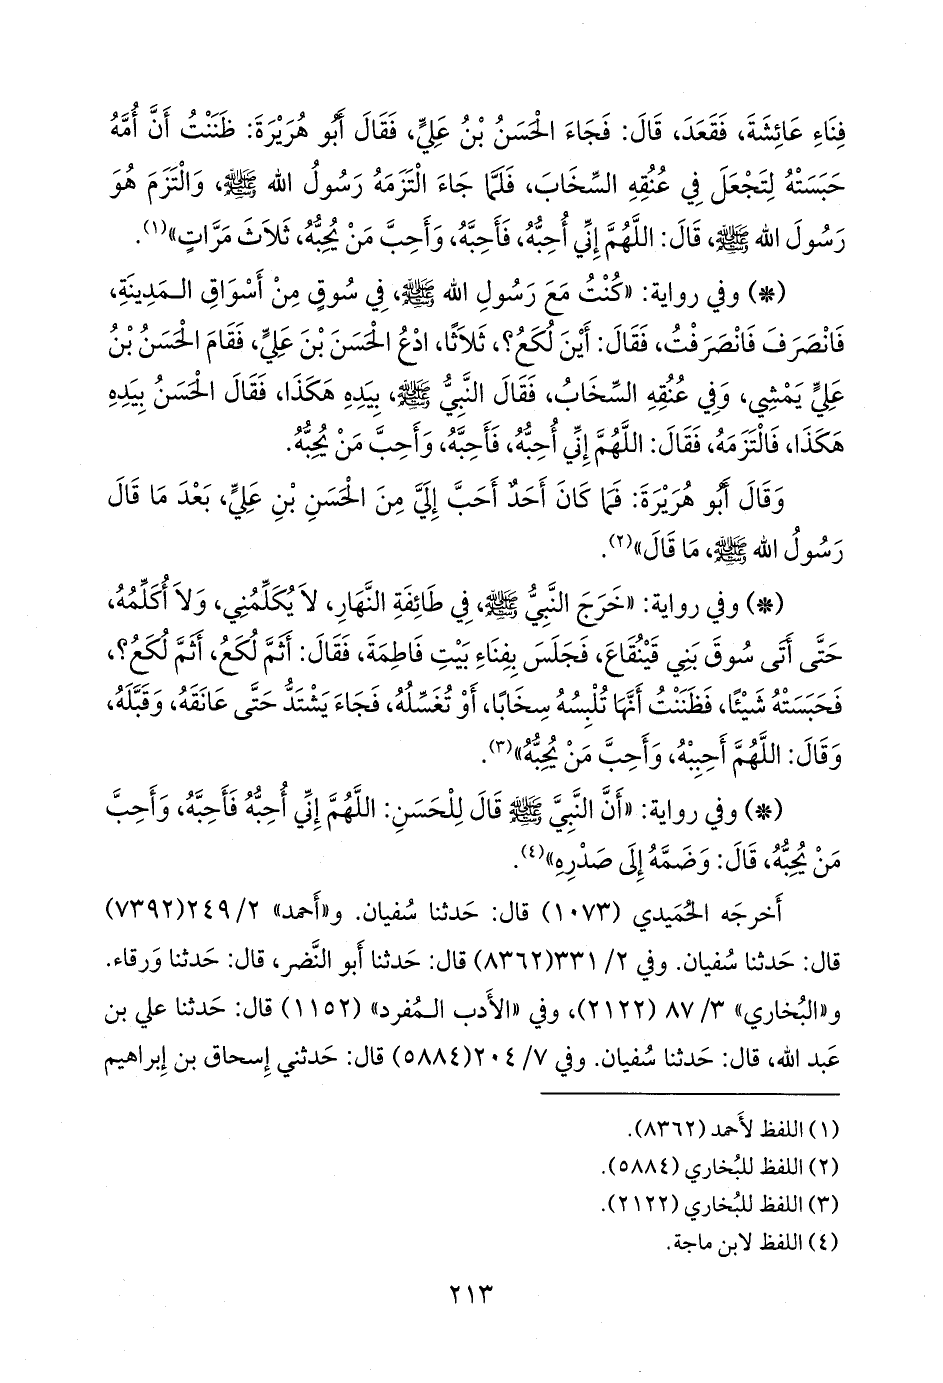 فِنَاءِ عَائِشَةَ، فَقَعَدَ، قَالَ: فَجَاءَ الْحَسَنُ بْنُ عَلِيٍّ، فَقَالَ أَبُو هُرَيْرَةَ: ظَنَنْتُ أَنَّ أُمَّهُ
حَبَسَتْهُ لِتَجْعَلَ فِي عُنُقِهِ السِّخَابَ، فَلَمَّا جَاءَ الْتَزَمَهُ رَسُولُ الله ﷺ، وَالْتَزَمَ هُوَ
رَسُولَ الله ﷺ، قَالَ: اللَّهُمَّ إِنِّي أُحِبُّهُ، فَأَحِبَّهُ، وَأَحِبَّ مَنْ يُحِبُّهُ، ثَلاَثَ مَرَّاتٍ»(١).
(*) وفي رواية: «كُنْتُ مَعَ رَسُولِ الله ﷺ، فِي سُوقٍ مِنْ أَسْوَاقِ الـمَدِينَةِ،
فَانْصَرَفَ فَانْصَرَفْتُ، فَقَالَ: أَيْنَ لُكَعُ؟، ثَلاَثًا، ادْعُ الْحَسَنَ بْنَ عَلِيٍّ، فَقَامَ الْحَسَنُ بْنُ
عَلِيٍّ يَمْشِي، وَفِي عُنُقِهِ السِّخَابُ، فَقَالَ النَّبِيُّ ﷺ، بِيَدِهِ هَكَذَا، فَقَالَ الْحَسَنُ بِيَدِهِ
هَكَذَا، فَالْتَزَمَهُ، فَقَالَ: اللَّهُمَّ إِنِّي أُحِبُّهُ، فَأَحِبَّهُ، وَأَحِبَّ مَنْ يُحِبُّهُ.
وَقَالَ أَبُو هُرَيْرَةَ: فَمَا كَانَ أَحَدٌ أَحَبَّ إِلَيَّ مِنَ الْحَسَنِ بْنِ عَلِيٍّ، بَعْدَ مَا قَالَ
رَسُولُ الله ﷺ، مَا قَالَ»(٢).
(*) وفي رواية: «خَرَجَ النَّبِيُّ ﷺ، فِي طَائِفَةِ النَّهَارِ، لاَ يُكَلِّمُنِي، وَلاَ أُكَلِّمُهُ،
حَتَّى أَتَى سُوقَ بَنِي قَيْنُقَاعَ، فَجَلَسَ بِفِنَاءِ بَيْتِ فَاطِمَةَ، فَقَالَ: أَثَمَّ لُكَعُ، أَثَمَّ لُكَعُ؟،
فَحَبَسَتْهُ شَيْئًا، فَظَنَنْتُ أَنَّهَا تُلْبِسُهُ سِخَابًا، أَوْ تُغَسِّلُهُ، فَجَاءَ يَشْتَدُّ حَتَّى عَانَقَهُ، وَقَبَّلَهُ،
وَقَالَ: اللَّهُمَّ أَحْبِبْهُ، وَأَحِبَّ مَنْ يُحِبُّهُ»(٣).
(*) وفي رواية: «أَنَّ النَّبِيَّ ﷺ قَالَ لِلْحَسَنِ: اللَّهُمَّ إِنِّي أُحِبُّهُ فَأَحِبَّهُ، وَأَحِبَّ
مَنْ يُحِبُّهُ، قَالَ: وَضَمَّهُ إِلَى صَدْرِهِ»(٤).
أَخرجَه الحُمَيدي (١٠٧٣) قال: حَدثنا سُفيان. و«أَحمد» ٢/ ٢٤٩(٧٣٩٢)
قال: حَدثنا سُفيان. وفي ٢/ ٣٣١(٨٣٦٢) قال: حَدثنا أَبو النَّضر، قال: حَدثنا وَرقاء.
و«البُخاري» ٣/ ٨٧ (٢١٢٢)، وفي «الأَدب الـمُفرد» (١١٥٢) قال: حَدثنا علي بن
عَبد الله، قال: حَدثنا سُفيان. وفي ٧/ ٢٠٤(٥٨٨٤) قال: حَدثني إِسحاق بن إِبراهيم
(١) اللفظ لأَحمد (٨٣٦٢).
(٢) اللفظ للبُخاري (٥٨٨٤).
(٣) اللفظ للبُخاري (٢١٢٢).
(٤) اللفظ لابن ماجة.
٢١٣